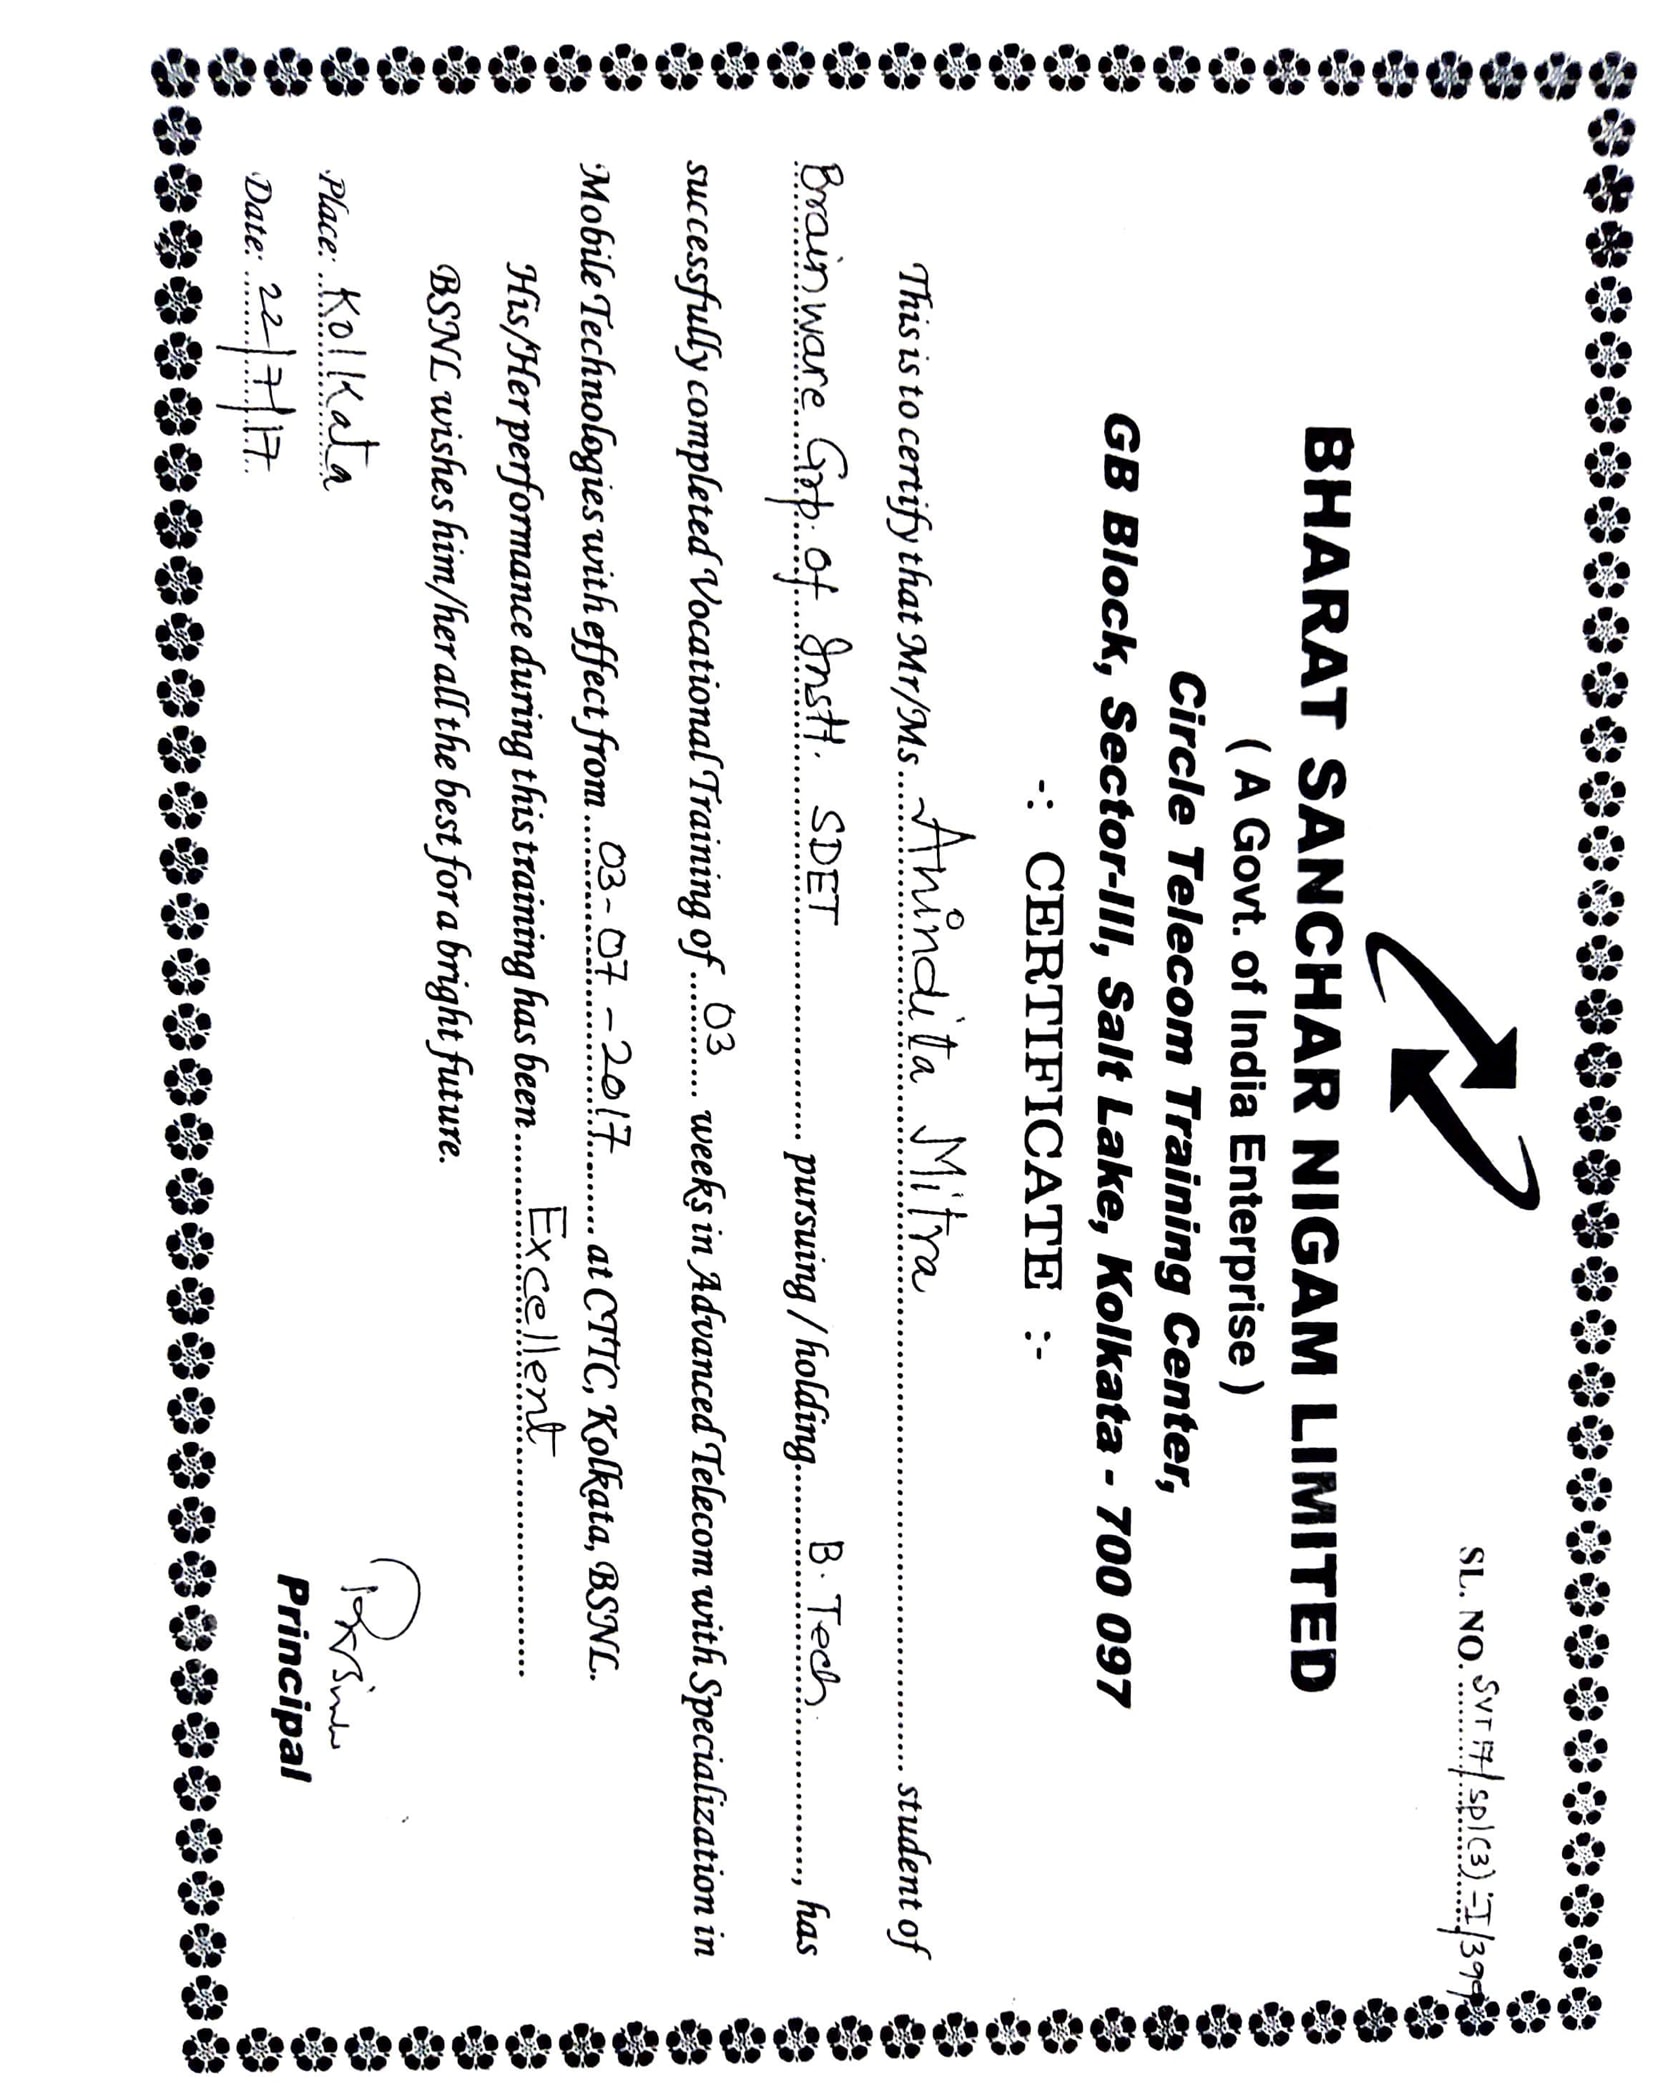 SL. NO. SVT17/spl(3)-I/399
BHARAT SANCHAR NIGAM LIMITED
( A Govt. of India Enterprise )
Circle Telecom Training Center,
GB Block, Sector-III, Salt Lake, Kolkata - 700 097
-: CERTIFICATE :-
This is to certify that Mr/Ms. Anindita Mitra student of
Brainware Grp. of Instt. SDET pursuing / holding B. Tech, has
successfully completed Vocational Training of 03 weeks in Advanced Telecom with Specialization in
Mobile Technologies with effect from 03-07-2017 at CTTC, Kolkata, BSNL.
His/Her performance during this training has been Excellent
BSNL wishes him/her all the best for a bright future.
Place: Kolkata
Date: 22/7/17
Principal